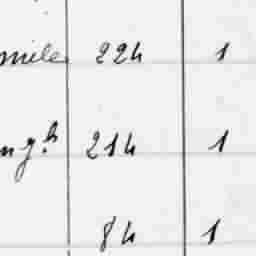 mile 224 1
ng.h 214 1
84 1